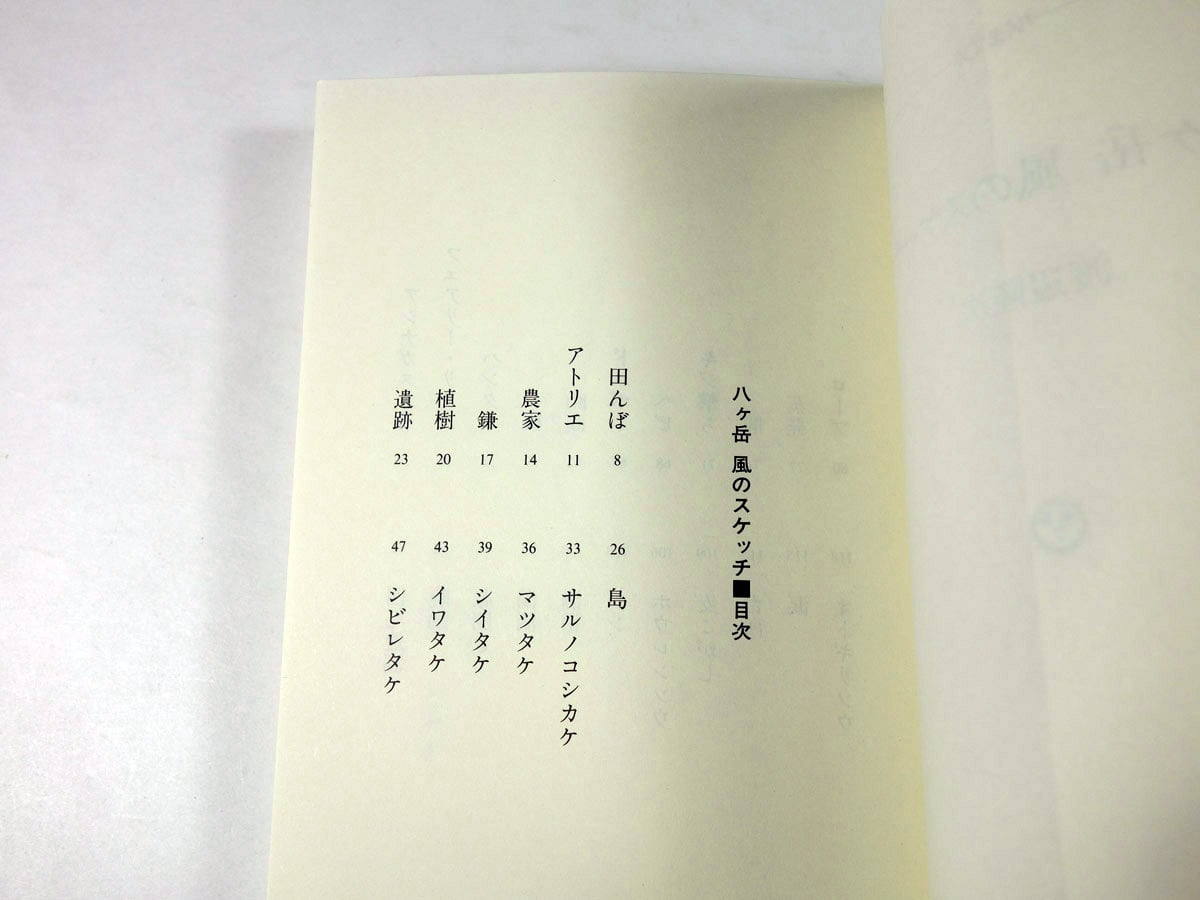 八ヶ岳 風のスケッチ■目次
田んぼ 8
アトリエ 11
農家 14
鎌 17
植樹 20
遺跡 23
26 島
33 サルノコシカケ
36 マツタケ
39 シイタケ
43 イワタケ
47 シビレタケ